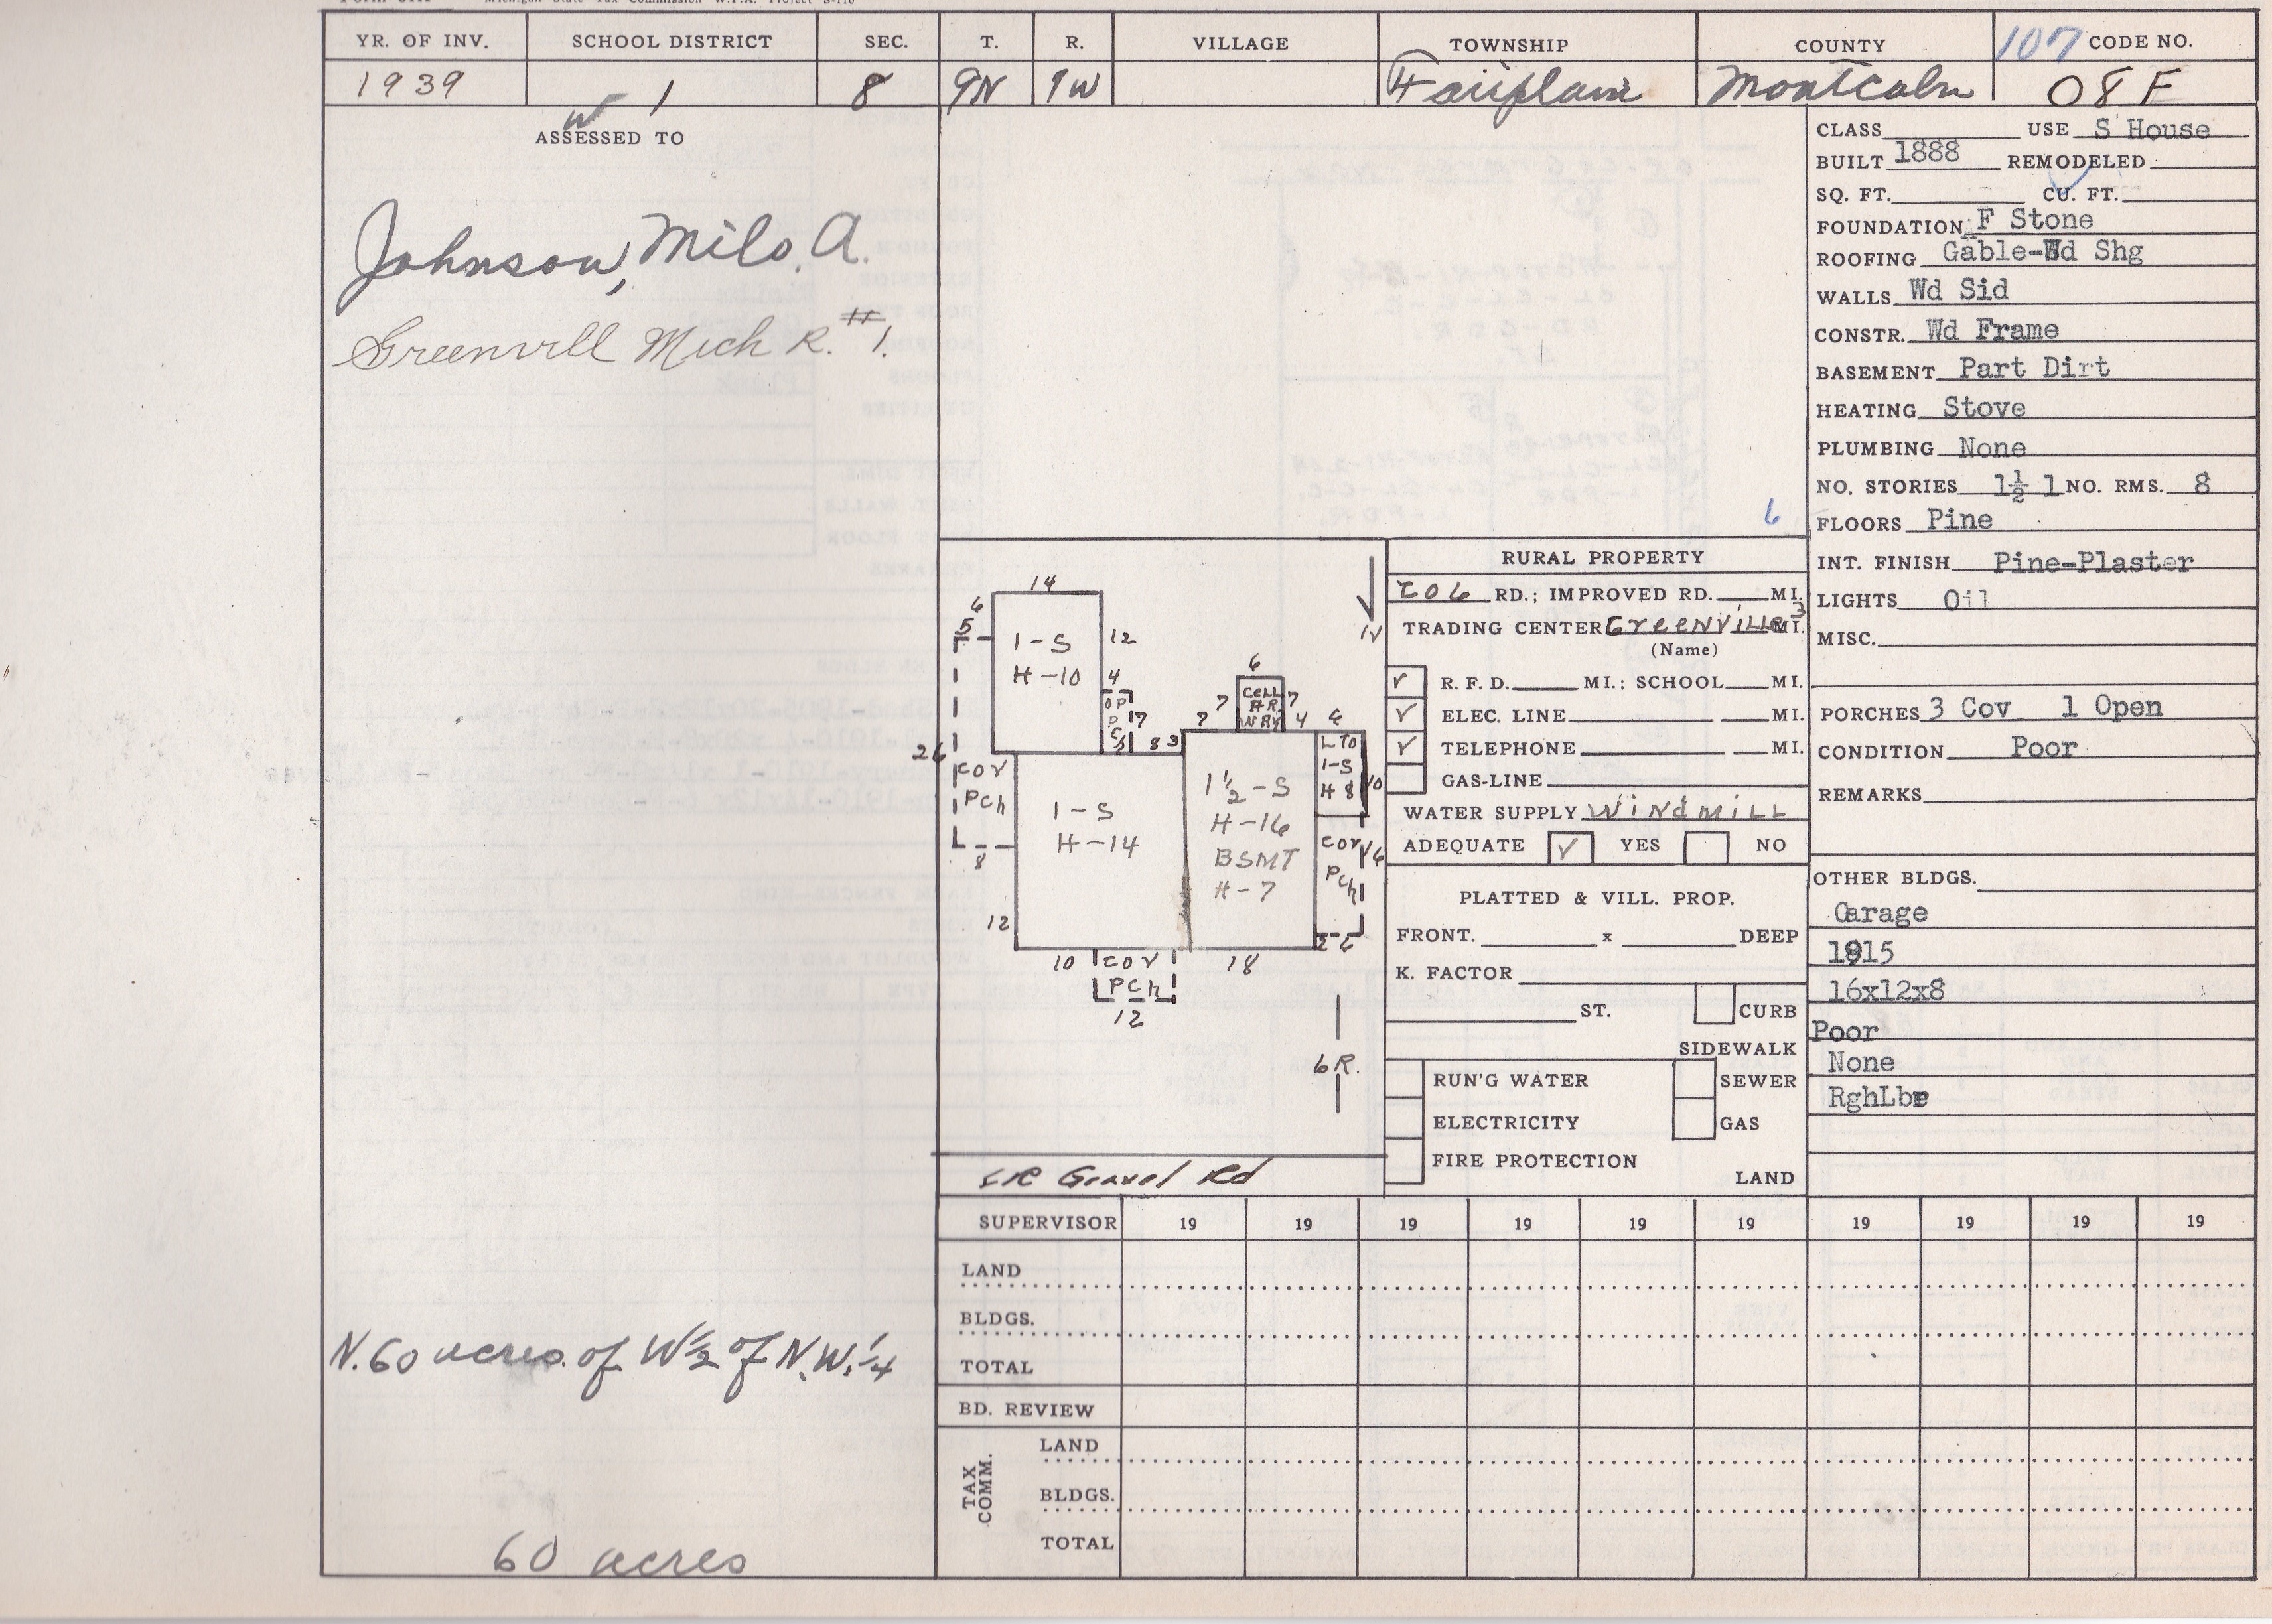 Michigan State Tax Commission W.P.A. Project S-110
YR. OF INV. SCHOOL DISTRICT SEC. T. R. VILLAGE TOWNSHIP COUNTY 107 CODE NO.
1939 1 8 9N 9W Fairplain Montcalm 08F
W
ASSESSED TO
Johnson, Milo. A.
Greenvill Mich R. #1.
N. 60 acres. of W½ of N.W.¼
60 acres
14
6
5
1-S
H-10
12
4
OP
PCh
7
8 3
26
COV
PCh
8
1-S
H-14
12
10
COV
PCh
12
18
6
CELL
AR.
WRY
7
7
7
4
6
1½-S
H-16
BSMT
H-7
L TO
1-S
H 8
10
COV
PCh
16
2 6
N
6R.
Gravel Rd
6
RURAL PROPERTY
CO6 RD.; IMPROVED RD. MI.
TRADING CENTER GreenviLLe 3 MI.
(Name)
✓ R. F. D. MI.; SCHOOL MI.
✓ ELEC. LINE MI.
✓ TELEPHONE MI.
GAS-LINE
WATER SUPPLY WindMiLL
ADEQUATE ✓ YES NO
PLATTED & VILL. PROP.
FRONT. x DEEP
K. FACTOR
ST. CURB
SIDEWALK
RUN'G WATER SEWER
ELECTRICITY GAS
FIRE PROTECTION
LAND
CLASS USE S House
BUILT 1888 REMODELED
SQ. FT. CU. FT.
FOUNDATION F Stone
ROOFING Gable-Wd Shg
WALLS Wd Sid
CONSTR. Wd Frame
BASEMENT Part Dirt
HEATING Stove
PLUMBING None
NO. STORIES 1½ 1 NO. RMS. 8
FLOORS Pine
INT. FINISH Pine-Plaster
LIGHTS Oil
MISC.
PORCHES 3 Cov 1 Open
CONDITION Poor
REMARKS
OTHER BLDGS.
Garage
1915
16x12x8
Poor
None
RghLbr
SUPERVISOR 19 19 19 19 19 19 19 19 19 19
LAND
BLDGS.
TOTAL
BD. REVIEW
TAX COMM.
LAND
BLDGS.
TOTAL